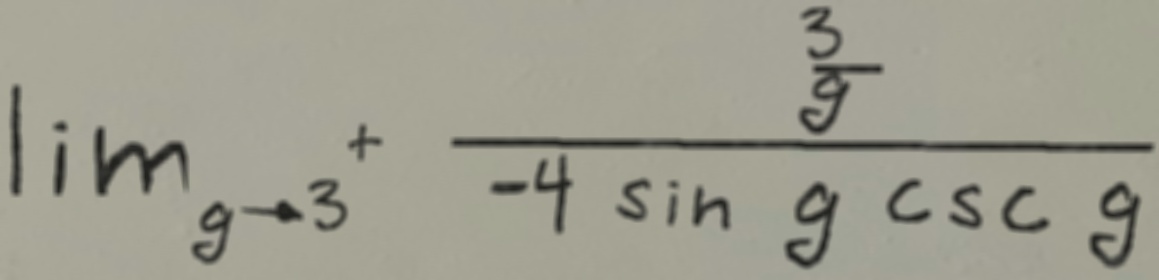 \lim_{g \to 3^+} \frac{\frac{3}{g}}{-4 \sin g \csc g}